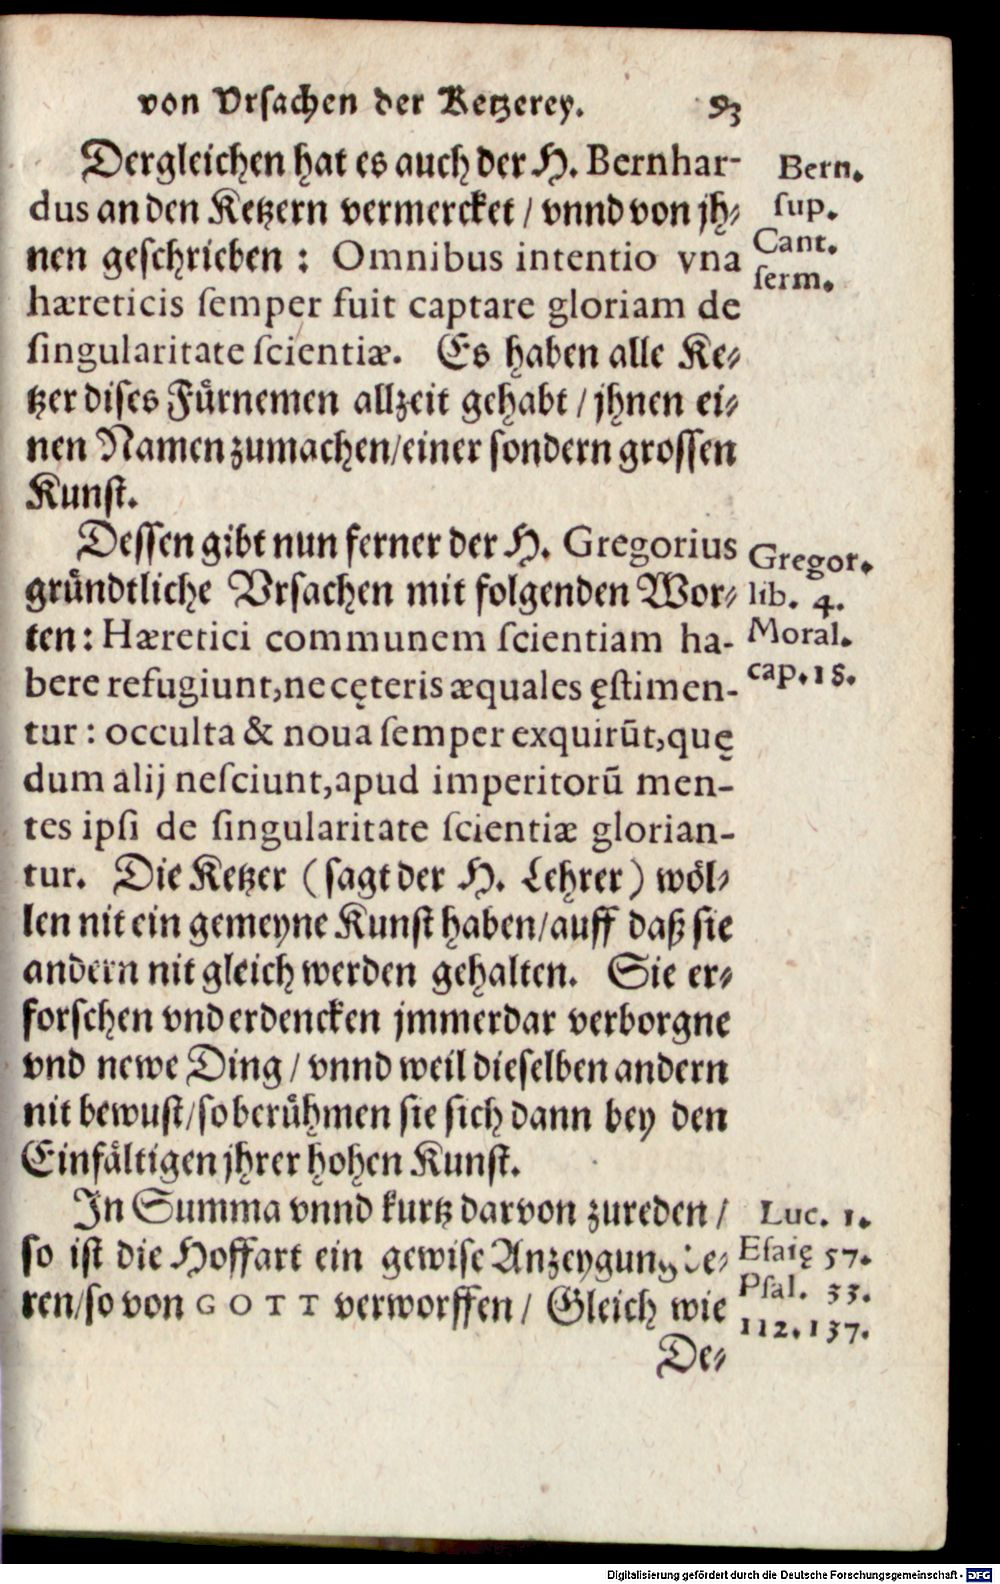 von Vrsachen der Ketzerey. 93
Dergleichen hat es auch der H. Bernhar-
dus an den Ketzern vermercket / vnnd von jh-
nen geschrieben : Omnibus intentio vna
hæreticis semper fuit captare gloriam de
singularitate scientiæ. Es haben alle Ke-
tzer dises Fürnemen allzeit gehabt / jhnen ei-
nen Namen zumachen/einer sondern grossen
Kunst.
Bern.
sup.
Cant.
serm.
Dessen gibt nun ferner der H. Gregorius
gründtliche Vrsachen mit folgenden Wor-
ten: Hæretici communem scientiam ha-
bere refugiunt,ne cęteris æquales ęstimen-
tur : occulta & noua semper exquirūt,quę
dum alij nesciunt,apud imperitorū men-
tes ipsi de singularitate scientiæ glorian-
tur. Die Ketzer (sagt der H. Lehrer) wöl-
len nit ein gemeyne Kunst haben/auff daß sie
andern nit gleich werden gehalten. Sie er-
forschen vnd erdencken jmmerdar verborgne
vnd newe Ding / vnnd weil dieselben andern
nit bewust/so berühmen sie sich dann bey den
Einfältigen jhrer hohen Kunst.
Gregor.
lib. 4.
Moral.
cap.18.
In Summa vnnd kurtz darvon zureden /
so ist die Hoffart ein gewise Anzeygung de-
ren/so von GOTT verworffen / Gleich wie
De-
Luc. 1.
Esaię 57.
Psal. 33.
112.137.
Digitalisierung gefördert durch die Deutsche Forschungsgemeinschaft - DFG